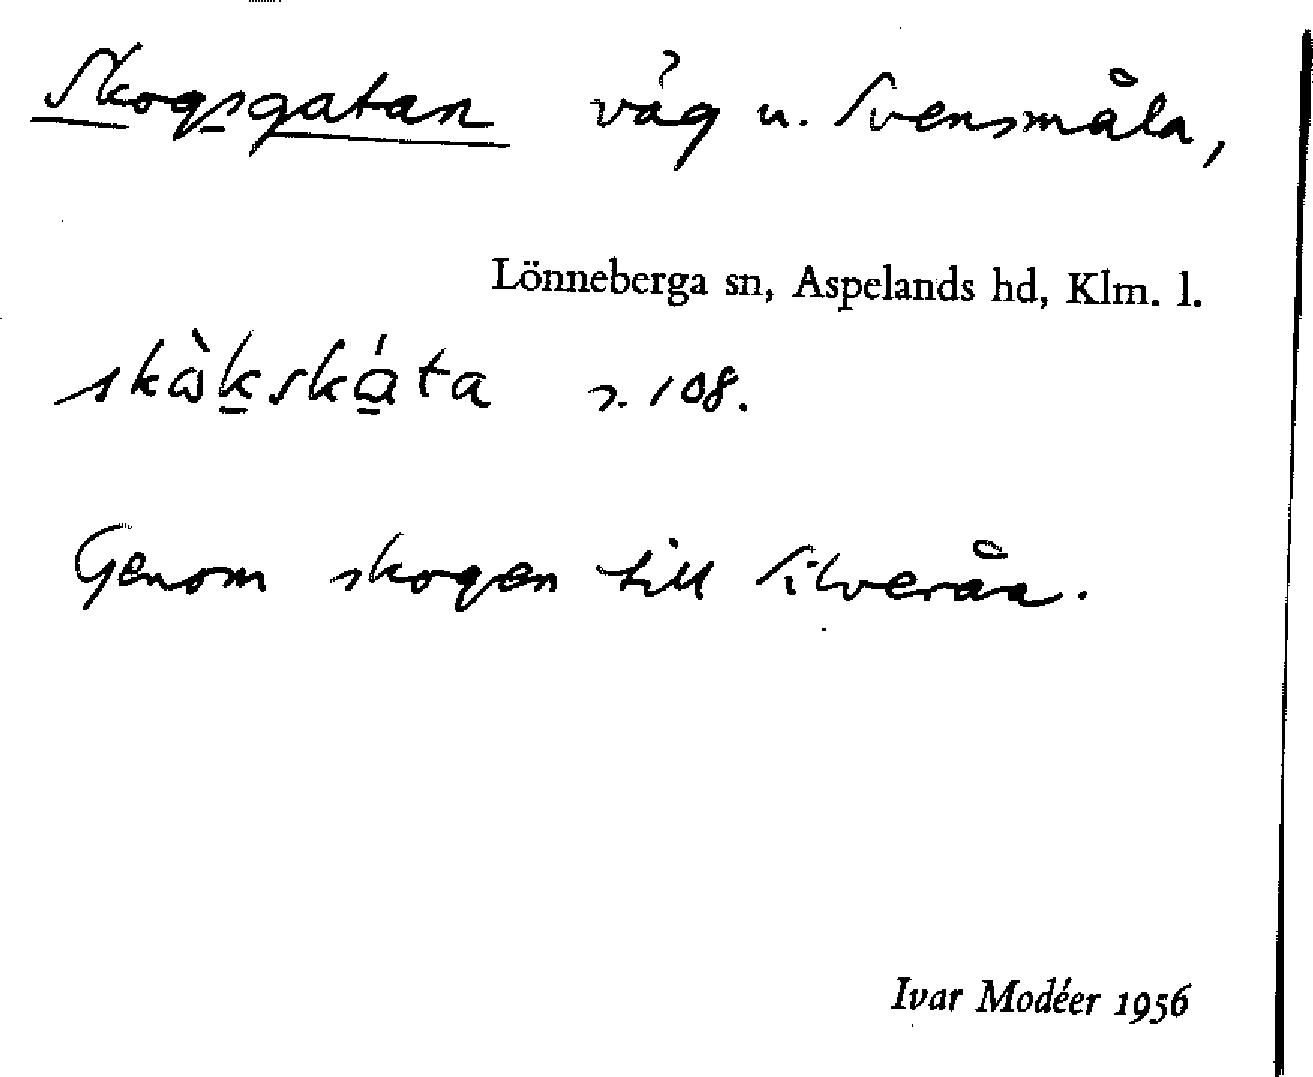 Skogsgatan väg u. Svensmåla,
Lönneberga sn, Aspelands hd, Klm. l.
skὰkskάta s. 108.
Genom skogen till Silveråa.
Ivar Modéer 1956